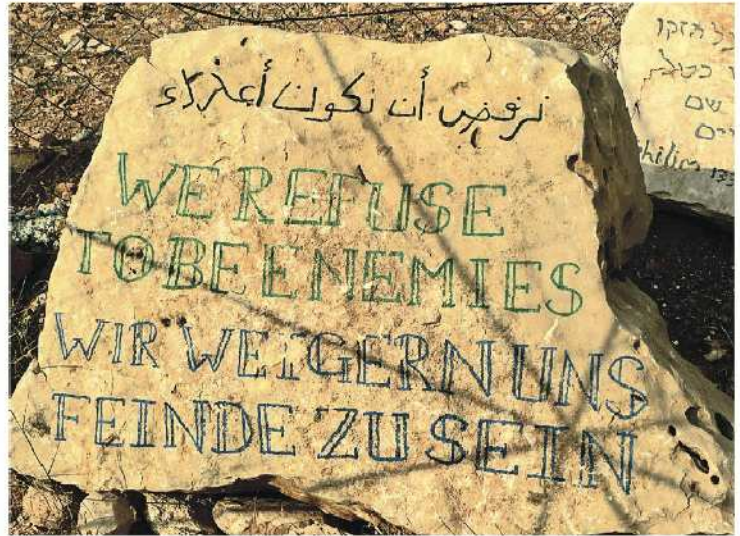 نرفض أن نكون أعداء
WE REFUSE
TO BE ENEMIES
WIR WEIGERN UNS
FEINDE ZU SEIN
שם